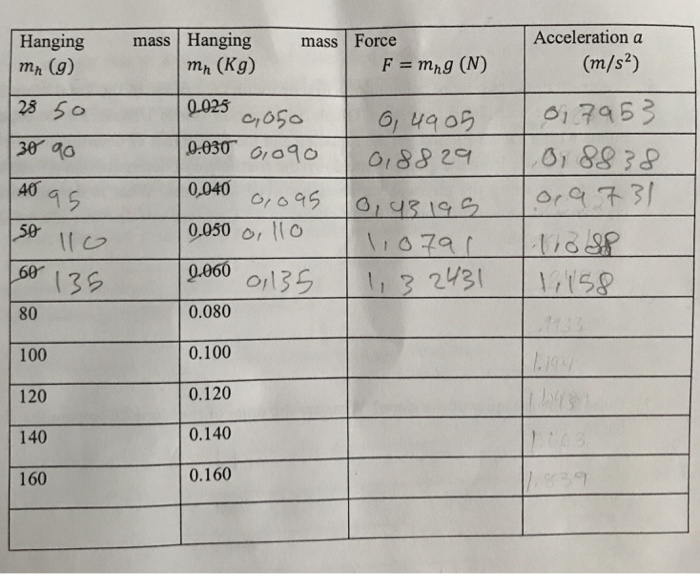 Hanging mass Hanging mass Force Acceleration a
mₕ (g) mₕ (Kg) F = mₕg (N) (m/s²)
28 50 0.025 0,050 0,4905 0,7953
30 90 0.030 0,090 0,8829 0,8838
40 95 0,040 0,095 0,93195 0,9731
50 110 0.050 0,110 1,0791
60 135 0.060 0,135 1,32431 1,158
80 0.080
100 0.100
120 0.120
140 0.140
160 0.160 1.839